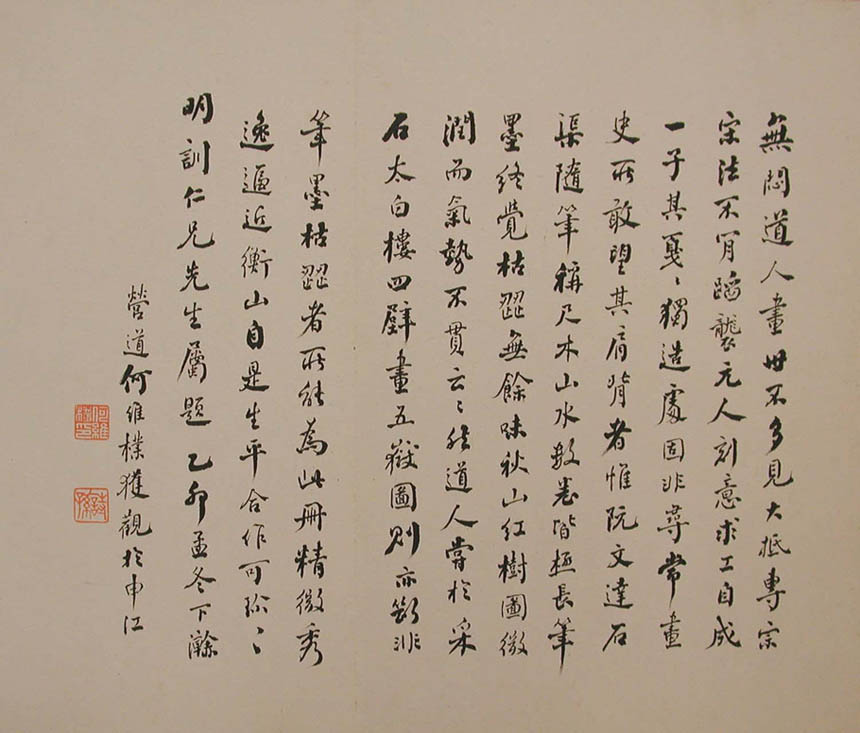 無悶道人畫世不多見大抵專宗
宋法不肎蹈襲元人刻意求工自成
一子其戛〻獨造處固非尋常畫
史所敢望其肩背者惟阮文達石
渠隨筆稱尺木山水數卷皆極長筆
墨終覺枯澀無餘味秋山紅樹圖微
潤而氣勢不貫云〻然道人嘗於采
石太白樓四壁畫五嶽圖則亦斷非
筆墨枯澀者所能為此冊精微秀
逸逼近衡山自是生平合作可珍〻
明訓仁兄先生屬題乙卯孟冬下澣
營道何維樸獲觀於申江
何維樸印
詩孫